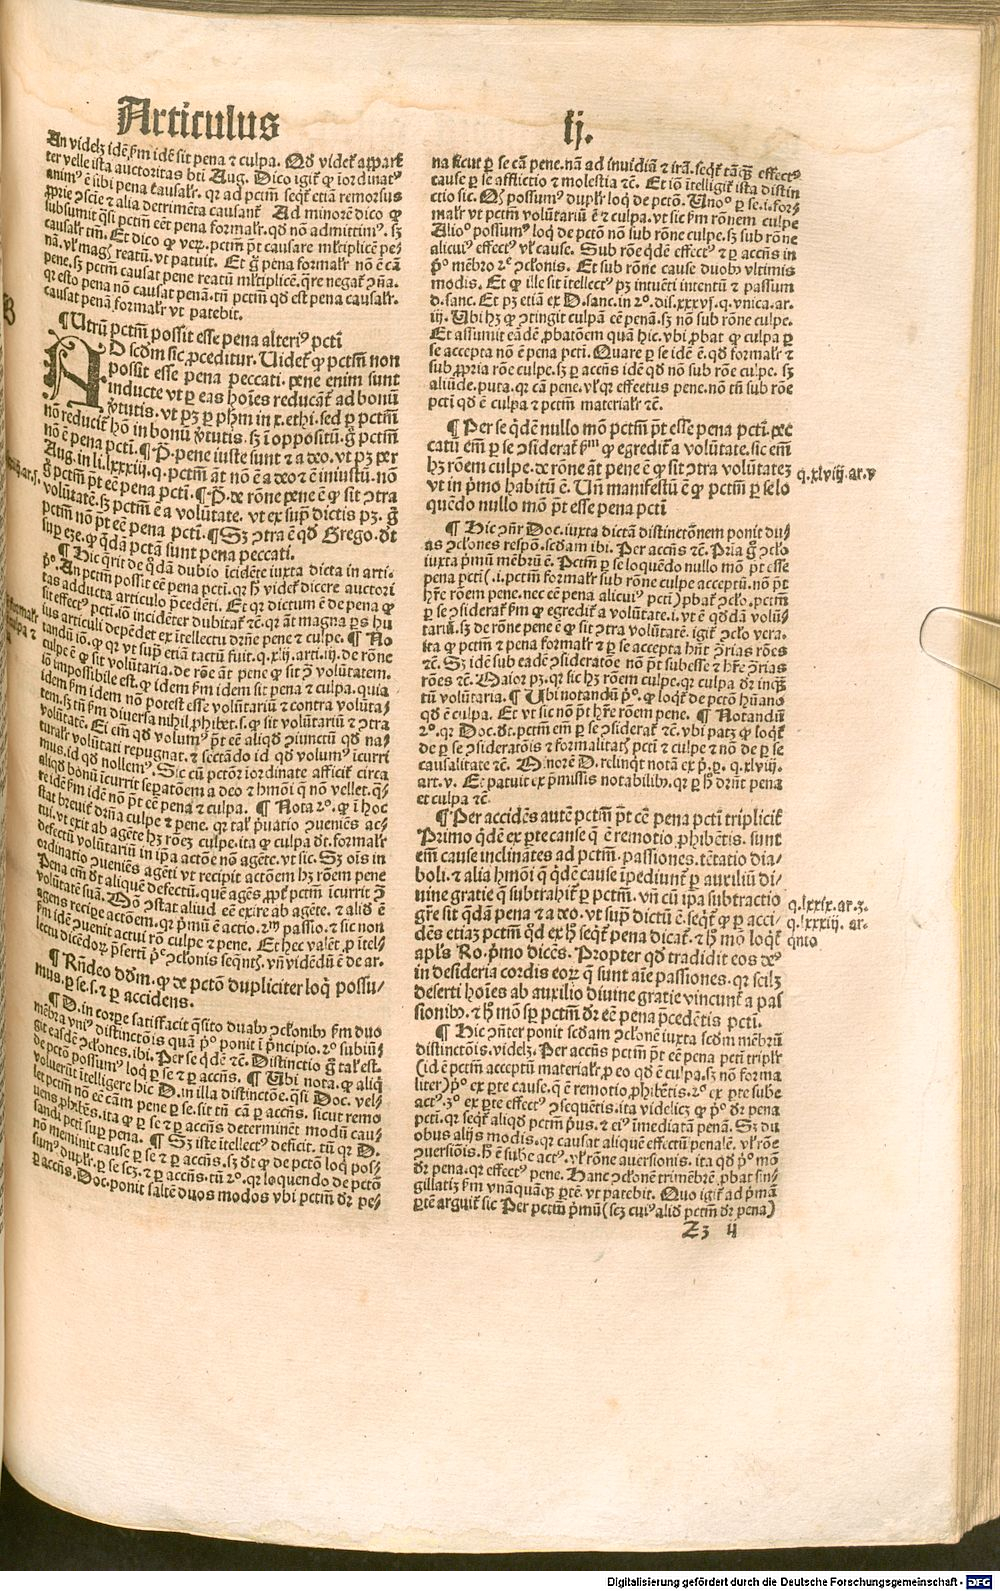 Articulus
ij.
An videlꝫ idē ẜm idē sit pena ⁊ culpa. Qđ videt᷑ apparē
ter velle ista auctoritas bti Aug. Dico igit᷑ ꝙ īordinatꝰ
animꝰ ē sibi pena causalr̄. qꝛ ad pctm̄ seqt᷑ etiā remorsus
ꝓprie ꝯscie ⁊ alia detrimēta causant᷑ Ad minorē dico ꝙ
subsumit qsi pctm̄ eēt pena formalr̄. qđ nō admittimꝰ. sꝫ
causalr̄ tm̄. Et dico ꝙ verꝫ. pctm̄ pt̄ causare ml̄tiplicē pe⸗
nā. vl̓ magꝭ reatū. vt patuit. Et gͦ pena formalr̄ nō ē cā
pene. sꝫ pctm̄ causat pene reatū ml̄tiplicē. qͣre negat᷑ ꝯn̄a.
qꝛ esto pena nō causat penā. tn̄ pctm̄ qđ est pena causalr̄.
causat penā formalr̄ vt patebit.
¶ Utrū pctm̄ possit esse pena alteriꝰ pcti
AD scđm sic ꝓceditur. Uidet᷑ ꝙ pctm̄ non
possit esse pena peccati. pene enim sunt
inducte vt ꝑ eas hoīes reducāt᷑ ad bonū
v̓tutis. vt pꝫ ꝑ pḣm in x. ethi. sed ꝑ pctm̄
nō reducit᷑ hō in bonū v̓tutis. sꝫ ī oppositū. gͦ pctm̄
nō ē pena pcti. ¶ P̄. pene iuste sunt ⁊ a deo. vt pꝫ per
Aug. in li. lxxxiij. q. pctm̄ āt nō ē a deo ⁊ ē iniustū. nō
gͦ pctm̄ pt̄ eē pena pcti. ¶ P̄. de rōne pene ē ꝙ sit ꝯtra
volūtatē. sꝫ pctm̄ ē a volūtate. vt ex supͣ dictis pꝫ. gͦ
pctm̄ nō pt̄ eē pena pcti. ¶ Sꝫ ꝯtra ē qđ Grego. dt
sup eze. ꝙ q̄dā pctā sunt pena peccati.
¶ Hic qͣrit de qͦdā dubio īcidēte iuxta dicta in arti⸗
pͦ. An pctm̄ possit eē pena pcti. qꝛ ḣ videt᷑ dicere auctori
tas adducta articulo p̄cedēti. Et qꝛ dictum ē de pena ꝙ
sit effectꝰ pcti. iō incidēter dubitat᷑ ⁊c̄. qꝛ āt magna ꝑs hu
ius articuli depēdet ex ītellectu drn̄e pene ⁊ culpe. ¶ No
tandū iō. ꝙ qꝛ vt supͣ etiā tactū fuit. q. xlij. arti. iij. de rōne
culpe ē ꝙ sit volūtaria. de rōne āt pene ꝙ sit ꝯ volūtatem.
iō impossibile est. ꝙ idem ẜm idem sit pena ⁊ culpa. quia
idem ẜm idem non potest esse voluntariū ⁊ contra volūta⸗
tem. sꝫ tn̄ ẜm diuersa nihil ꝓhibet. s. ꝙ sit volūtariū ⁊ ꝯtra
volūtatē. Ei em̄ qđ volumꝰ pt̄ eē aliqđ ꝯiunctū qđ na⸗
turalr̄ volūtati repugnat. ⁊ sectādo id qđ volumꝰ īcurri
mus. id qđ nollemꝰ. Sic cū pctōr iordinate afficit᷑ circa
aliqđ bonū īcurrit sepatōem a deo ⁊ hmōi q̄ nō vellet. qͣ⸗
re idē ẜm idē nō pt̄ eē pena ⁊ culpa. ¶ Nota 2ͦ. ꝙ ī hoc
stat breuit᷑ drn̄a culpe ⁊ pene. qꝛ tal̓ p̄uatio ꝯueniēs ac⸗
tui. vt exit ab agēte hꝫ rōeꝫ culpe. ita ꝙ culpa dt. formalr̄
defectū volūtariū in ip̄a actōe nō agēte. vt sic. Sꝫ oīs in
ordinatio ꝯueniēs agēti vt recipit actōem hꝫ rōem pene
Pena em̄ dt aliquē defectū. quē agēs ꝓpt᷑ pctm̄ īcurrit ꝯͣ
volūtatē suā. Mō ꝯstat aliud eē exire ab agēte. ⁊ aliđ ē
agens recipe actōem. qꝛ p̄mū ē actio. 2ᵐ passio. ⁊ sic non
ẜm idē ꝯuenit actui rō culpe ⁊ pene. Et hec valēt. ꝑ ītel⸗
lectu dicēdoꝝ. p̄serti pͥe ꝯclonis seqn̄tꝭ. vn̄ vidēdū ē de ar.
¶ Rn̄deo dđm. ꝙ de pctō dupliciter loqͥ possu⸗
mus. ꝑ se. s. ⁊ ꝑ accidens.
¶ D. in corꝑe satisfacit q̄sito duabꝫ ꝯclonibꝫ ẜm duo
mēbra vniꝰ distinctōis quā pͦ ponit ī p̄ncipio. 2ͦ subiun̄
git easdē ꝯclones. ibi. Per se q̄dē ⁊c̄. Distinctio gͦ tal̓ est.
de pctō possumꝰ loqͥ ꝑ se ⁊ ꝑ accn̄s. ¶ Ubi nota. ꝙ aliq̄
voluerūt ītelligere hic D. in illa distinctōe. qsi Doc. vel⸗
let pctm̄ nō eē cām pene ꝑ se. sit tn̄ cā ꝑ accn̄s. sicut remo
uens ꝓhibēs. ita ꝙ ꝑ se ⁊ ꝑ accn̄s determinēt modū cau⸗
sandi pcti suꝑ pena. ¶ Sꝫ iste ītellectꝰ deficit. tū qꝛ D.
nō meminit cause ꝑ se ⁊ ꝑ accn̄s. sꝫ dt ꝙ de pctō loqͥ pos⸗
sumꝰ duplr̄. ꝑ se scꝫ. ⁊ ꝑ accn̄s. tū 2ͦ. qꝛ loquendo de pctō
ꝑ accn̄s. Doc. ponit saltē duos modos vbi pctm̄ dr̄ pe⸗
na sicut ꝑ se cā pene. nā ad inuidiā ⁊ irā. seqt᷑ tāqꝫ effectꝰ
cause ꝑ se afflictio ⁊ molestia ⁊c̄. Et iō ītelligit᷑ ista distin
ctio sic. Qꝫ possumꝰ duplr̄ loqͥ de pctō. Unoͦ ꝑ se. i. for⸗
malr̄ vt pctm̄ volūtariū ē ⁊ culpa. vt sic ẜm rōnem culpe
Alioͦ possumꝰ loqͥ de pctō nō sub rōne culpe. sꝫ sub rōne
alicuiꝰ effectꝰ vl̓ cause. Sub rōne q̄dē effectꝰ ⁊ ꝑ accn̄s in
pͦ mēbro 2ͤ ꝯclonis. Et sub rōne cause duobꝫ vltimis
modis. Et ꝙ ille sit ītellectꝰ pꝫ intuēti intentū ⁊ passum
d. sanc. Et pꝫ etiā ex D. sanc. in 2ͦ. dis. xxxvj. q. vnica. ar.
iij. Ubi hꝫ ꝙ ꝯtingit culpā eē penā. sꝫ nō sub rōne culpe.
Et assumit eādē ꝓbatōem quā hic. vbi ꝓbat ꝙ culpa ꝑ
se accepta nō ē pena pcti. Quare ꝑ se idē ē. qđ formalr̄ ⁊
sub ꝓpria rōe culpe. sꝫ ꝑ accn̄s idē qđ nō sub rōe culpe. sꝫ
aliūde. puta. qꝛ cā pene. vl̓ qꝛ effectus pene. nō tn̄ sub rōe
pcti qđ ē culpa ⁊ pctm̄ materialr̄ ⁊c̄.
¶ Per se q̄dē nullo mō pctm̄ pt̄ esse pena pcti. pec
catū em̄ ꝑ se ꝯsiderat᷑ ẜm ꝙ egredit᷑ a volūtate. sic em̄
hꝫ rōem culpe. de rōne āt pene ē ꝙ sit ꝯtra volūtateꝫ
vt in p̄mo habitū ē. Un̄ manifestū ē ꝙ pctm̄ ꝑ se lo
quēdo nullo mō pt̄ esse pena pcti
¶ Hic ꝯn̄r Doc. iuxta dictā distinctōnem ponit du⸗
as ꝯclones respō. scđam ibi. Per accn̄s ⁊c̄. Pria gͦ ꝯclo
iuxta p̄mū mēbrū ē. Pctm̄ ꝑ se loquēdo nullo mō pt̄ esse
pena pcti (. i. pctm̄ formalr̄ sub rōne culpe acceptū. nō pt̄
hr̄e rōem pene. nec eē pena alicuiꝰ pcti) ꝓbat᷑ ꝯclo. pctm̄
ꝑ se ꝯsiderat᷑ ẜm ꝙ egredit᷑ a volūtate. i. vt ē qđdā volū⸗
tariū. sꝫ de rōne pene ē ꝙ sit ꝯtra volūtatē. igit᷑ ꝯclo vera.
ita ꝙ pctm̄ ⁊ pena formalr̄ ⁊ ꝑ se accepta hn̄t ꝯ̄rias rōes
⁊c̄. Sꝫ idē sub eadē ꝯsideratōe nō pt̄ subesse ⁊ hr̄e ꝯ̄rias
rōes ⁊c̄. Maior pꝫ. qꝛ sic hꝫ rōem culpe. qꝛ culpa dr̄ inqꝫ
tū volūtaria. ¶ Ubi notandū pͦ. ꝙ loqt᷑ de pctō hūano
qđ ē culpa. Et vt sic nō pt̄ hr̄e rōem pene. ¶ Notandū
2ͦ. qꝛ Doc. dt. pctm̄ em̄ ꝑ se ꝯsiderat᷑ ⁊c̄. vbi patꝫ ꝙ loqt᷑
de ꝑ se ꝯsideratōis ⁊ formalitatꝭ pcti ⁊ culpe ⁊ nō de ꝑ se
causalitate ⁊c̄. Minorē D. relinqt notā ex pͣ. ꝑ. q. xlviij.
art. v. Et patuit ex p̄missis notabilibꝫ. qꝛ ꝑ ḣ drn̄t pena
et culpa ⁊c̄
¶ Per accidēs autē pctm̄ pt̄ eē pena pcti triplicit᷑
Primo q̄dē ex ꝑte cause q̄ ē remotio ꝓhibētis. sunt
em̄ cause inclinātes ad pctm̄. passiones. tētatio dia⸗
boli. ⁊ alia hmōi q̄ q̄dē cause īpediunt᷑ ꝑ auxiliū di⸗
uine gratie q̄ subtrahit᷑ ꝑ pctm̄. vn̄ cū ip̄a subtractio
gr̄e sit q̄dā pena ⁊ a deo. vt supͣ dictū ē. seqt᷑ ꝙ ꝑ acci⸗
dēs etiaꝫ pctm̄ qđ ex ḣ seqt᷑ pena dicat᷑. ⁊ ḣ mō loqt᷑
apl̓s Ro. p̄mo dicēs. Propter qđ tradidit eos deꝰ
in desideria cordis eoꝝ q̄ sunt aīe passiones. qꝛ scilꝫ
deserti hoīes ab auxilio diuine gratie vincunt᷑ a pas
sionibꝫ. ⁊ ḣ mō sp̄ pctm̄ dr̄ eē pena p̄cedētis pcti.
¶ Hic ꝯn̄ter ponit scđam ꝯclonē iuxta scđm mēbrū
distinctōis. videlꝫ. Per accn̄s pctm̄ pt̄ eē pena pcti triplr̄
(id ē pctm̄ acceptū materialr̄. ꝓ eo qđ ē culpa. sꝫ nō forma
liter) pͦ ex ꝑte cause. q̄ ē remotio ꝓhibētis. 2ͦ ex ꝑte sube
actꝰ. 3ͦ ex ꝑte effectꝰ ꝯsequētis. ita videlicꝫ ꝙ pͦ dr̄ pena
pcti. qꝛ seqt᷑ aliqđ pctm̄ p̄us. ⁊ eiꝰ īmediatā penā. Sꝫ du
obus alijs modis. qꝛ causat aliquē effectū penalē. vl̓ rōe
ꝯuersiōis. ḣ ē sube actꝰ. vl̓ rōne auersionis. ita qđ pͦ mō
dr̄ pena. qꝛ effectꝰ pene. Hanc ꝯclonē trimēbrē ꝓbat sin⸗
gillatiꝫ ẜm vnāquāqꝫ ꝑtē. vt patebit. Quo igit᷑ ad p̄mā
ꝑtē arguit᷑ sic Per pctm̄ p̄mū (scꝫ cuiꝰ aliđ pctm̄ dr̄ pena)
q. xlviij. ar. v
q. lxxix. ar. 3.
q. lxxxiij. ar.
qͥnto
Zz ij
Digitalisierung gefördert durch die Deutsche Forschungsgemeinschaft - DFG